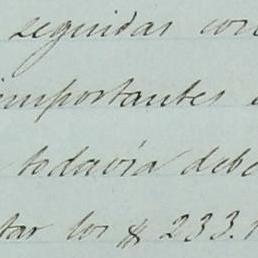 seguidas con
importantes
todavía debe
tar los $ 233.